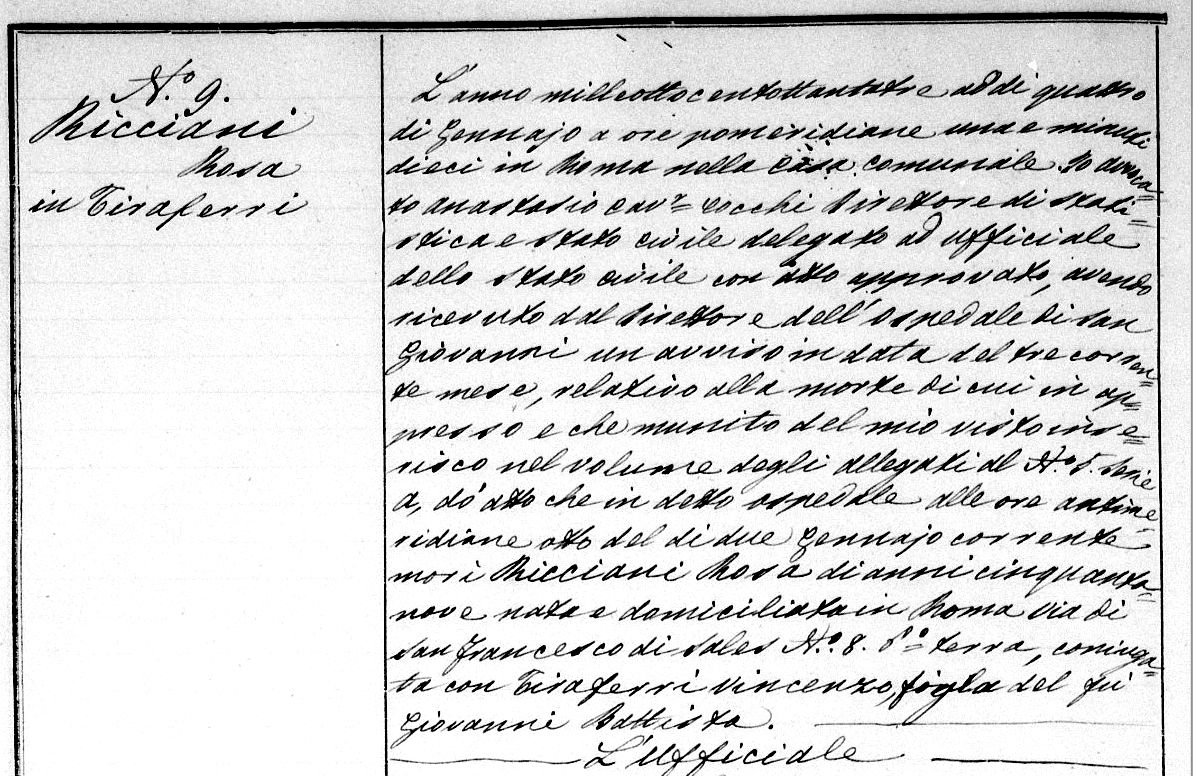 N.º 9.
Ricciani
Rosa
in Tiraferri
L'anno milleottocentottantatre add di quattro
di Gennajo a ore pomeridiane una e minuti
dieci in Roma nella casa comunale. Io avvoca=
to anastasio cavʳ= Cocchi Direttore di stati=
stica e stato civile delegato ad ufficiale
dello stato civile con atto approvato, avendo
ricevuto dal Direttore dell'Ospedale di San
Giovanni un avviso in data del tre corren=
te mese, relativo alla morte di cui in ap=
presso e che munito del mio visto inse=
risco nel volume degli allegati al N.º 5. Serie
a, dò atto che in detto ospedale alle ore antime=
ridiane otto del di due Gennajo corrente
morì Ricciani Rosa di anni cinquanta=
nove nata e domiciliata in Roma via di
san Francesco di Sales N.º 8. pº= terra, coniuga=
ta con Tiraferri Vincenzo, figla del fù
Giovanni Battista.
L'Ufficiale